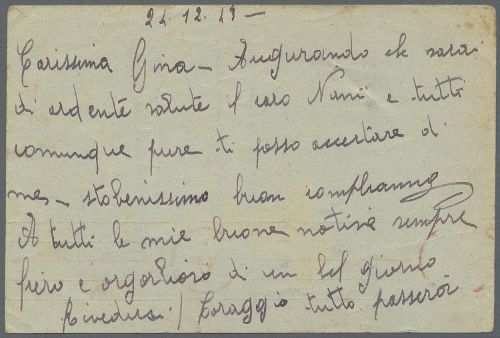 24.12.43 –
Carissima Gina – Augurando che sarai
di ardente salute il caro Nani e tutti
comunque pure ti posso accertare di
me – stobenissimo buon compleanno
A tutti le mie buone notizie sempre
fiero e orgoglioso di un bel giorno
Rivedersi / Coraggio tutto passerà